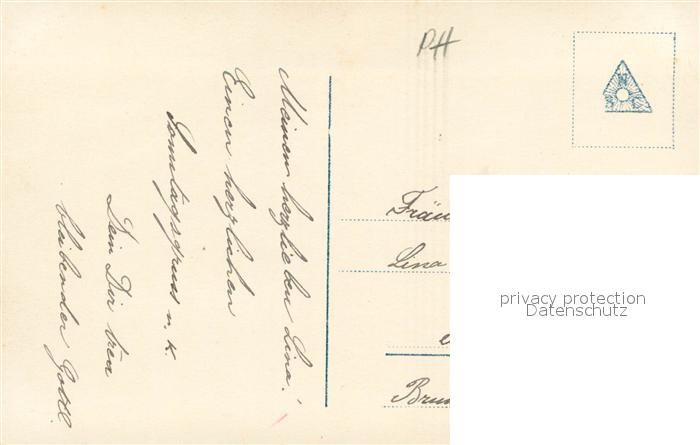 Meinen herzlieben Lina!
Einen herzlichen
Sonntagsgruss u. K.
Dein Dir treu
bleibender Gottl.
PH
Fräu
Lina
Brun
privacy protection
Datenschutz